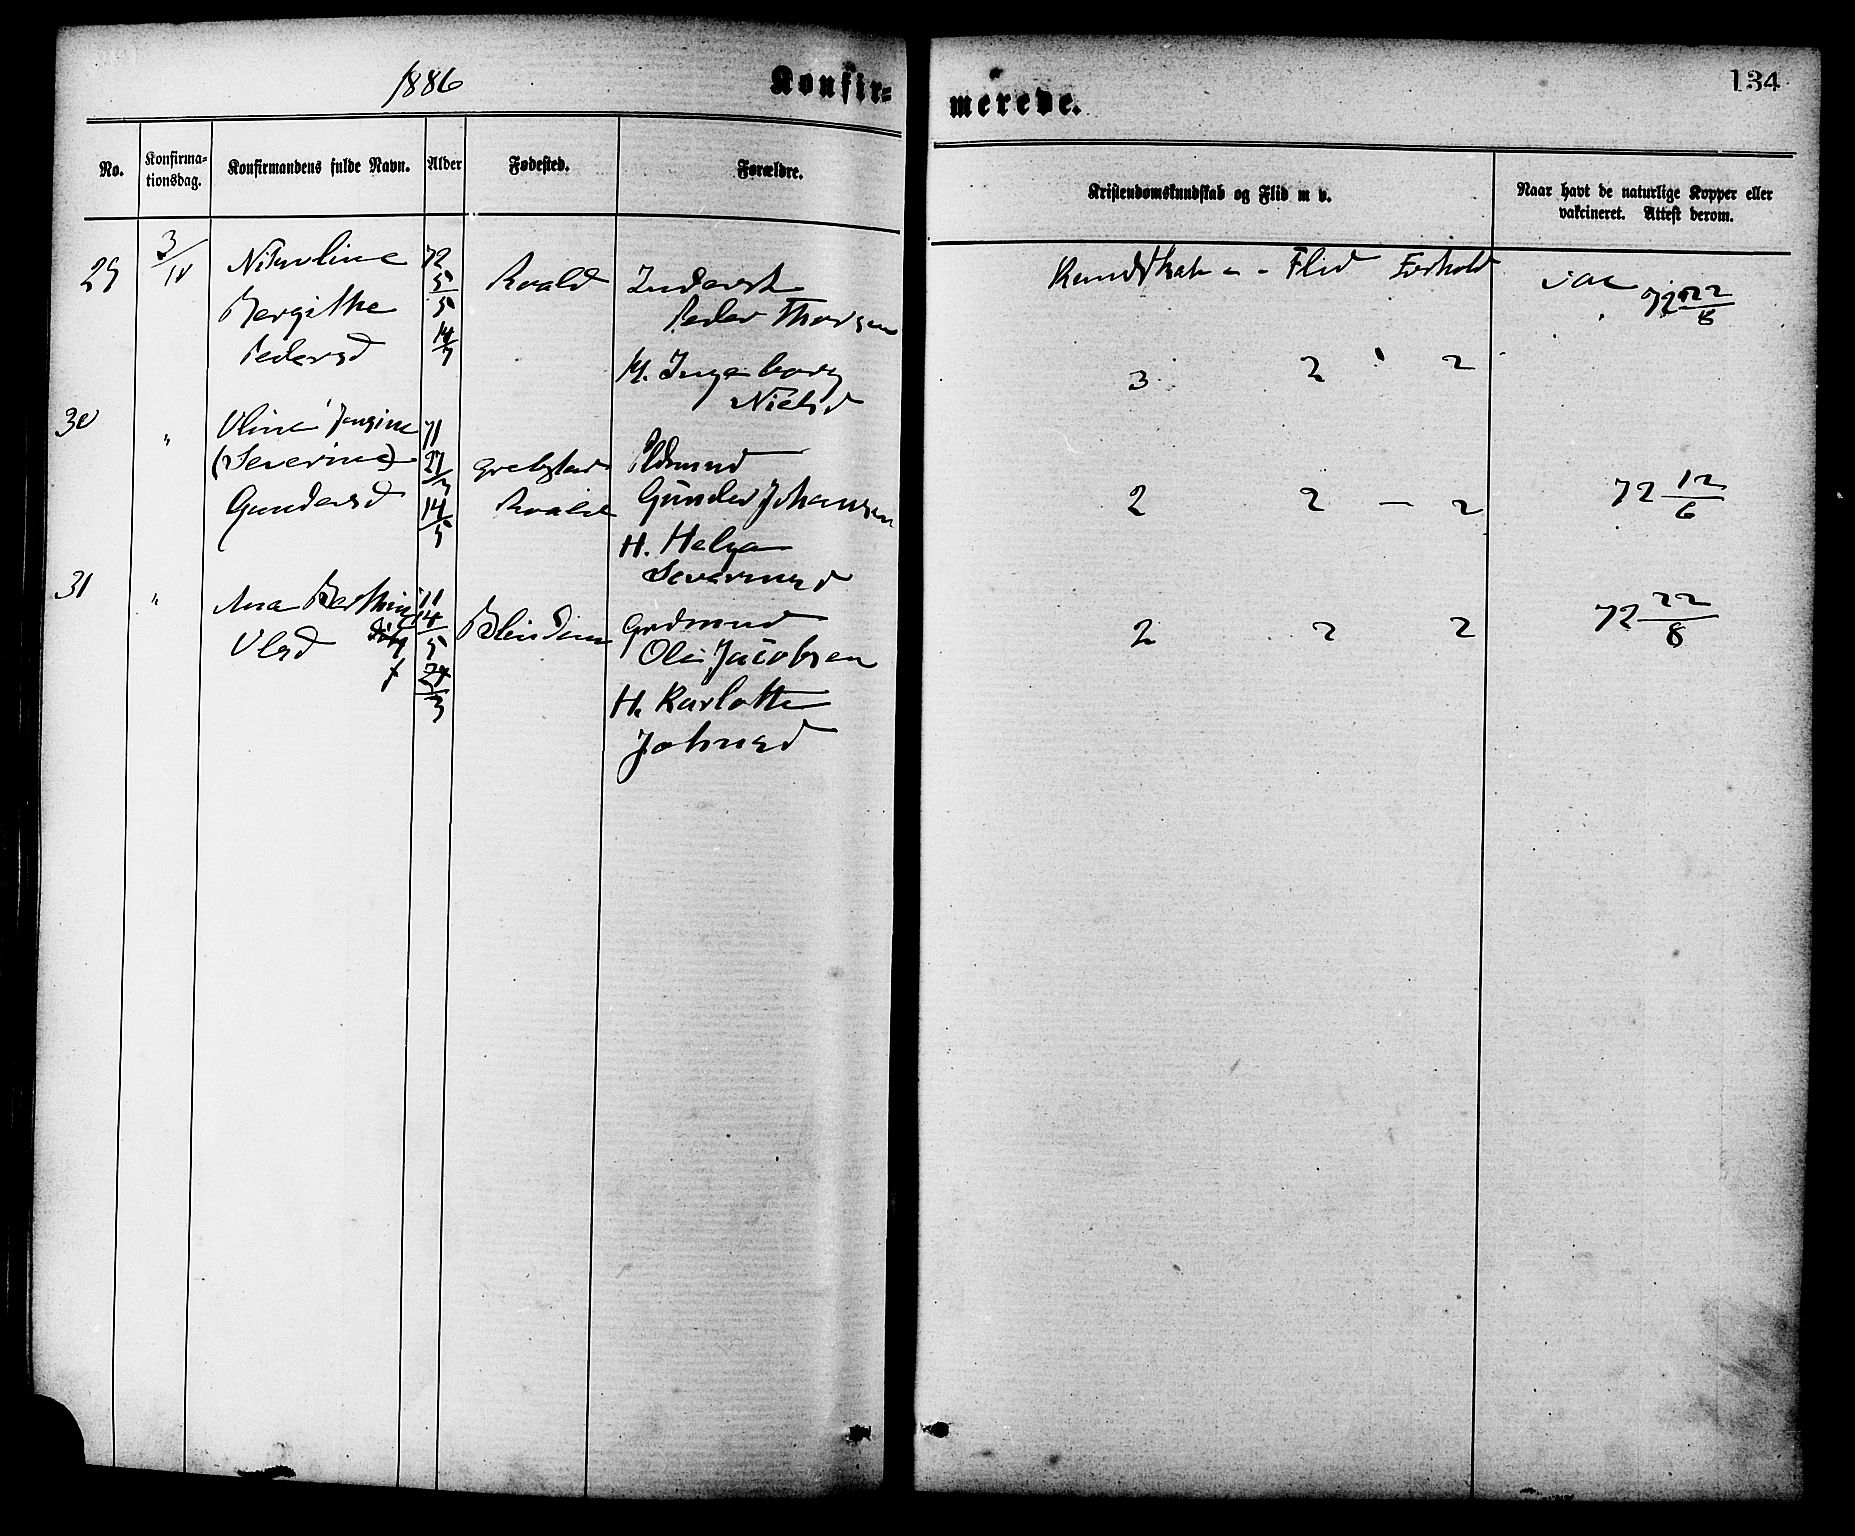 1886
Konfir-
merede.
134
No.
Konfirma-
tionsdag.
Konfirmandens fulde Navn.
Alder
Fødested.
Forældre.
Kristendomskundskab og Flid m v.
Naar havt de naturlige Kopper eller
vakcineret. Attest derom.
Kundskab - - Flid Forhold
vac
29
3/10
Nikoline
Bergithe
Pedersd
72
5/5
14/7
Roald
Inderst
Peder Thorsen
H. Ingeborg
Nielsd
3 2 2
72 22/8
30
"
Oline Jensine
(Severine)
Gundersd
71
27/7
14/5
Roald
Gunder Johansen
H. Helga
2 2 — 2
72 12/6
31
"
Ana Berthine
Olsd
f
71
14/5
27/3
Blindem
Grdmand
Ole Jacobsen
H. Karlotte
Johnsd
2 2 2
72 22/8